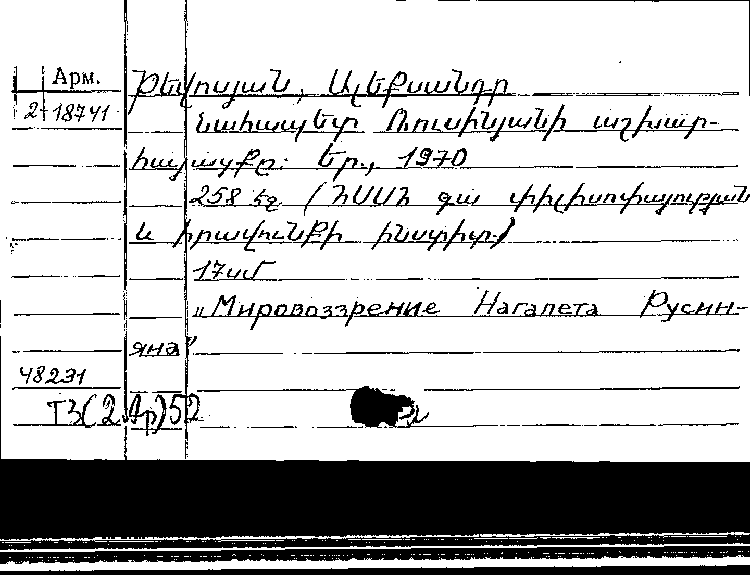 Арм.
2-18741
Թևոսյան, Ալեքսանդր
Նահապետ Ռուսինյանի աշխար-
հայացքը: Եր., 1970
258 էջ (ՀՍՍՀ ԳԱ փիլիսոփայության
և իրավունքի ինստիտ.)
17սմ
„Мировоззрение Нагапета Русин-
яна"
48231
Т3(2Ар)52